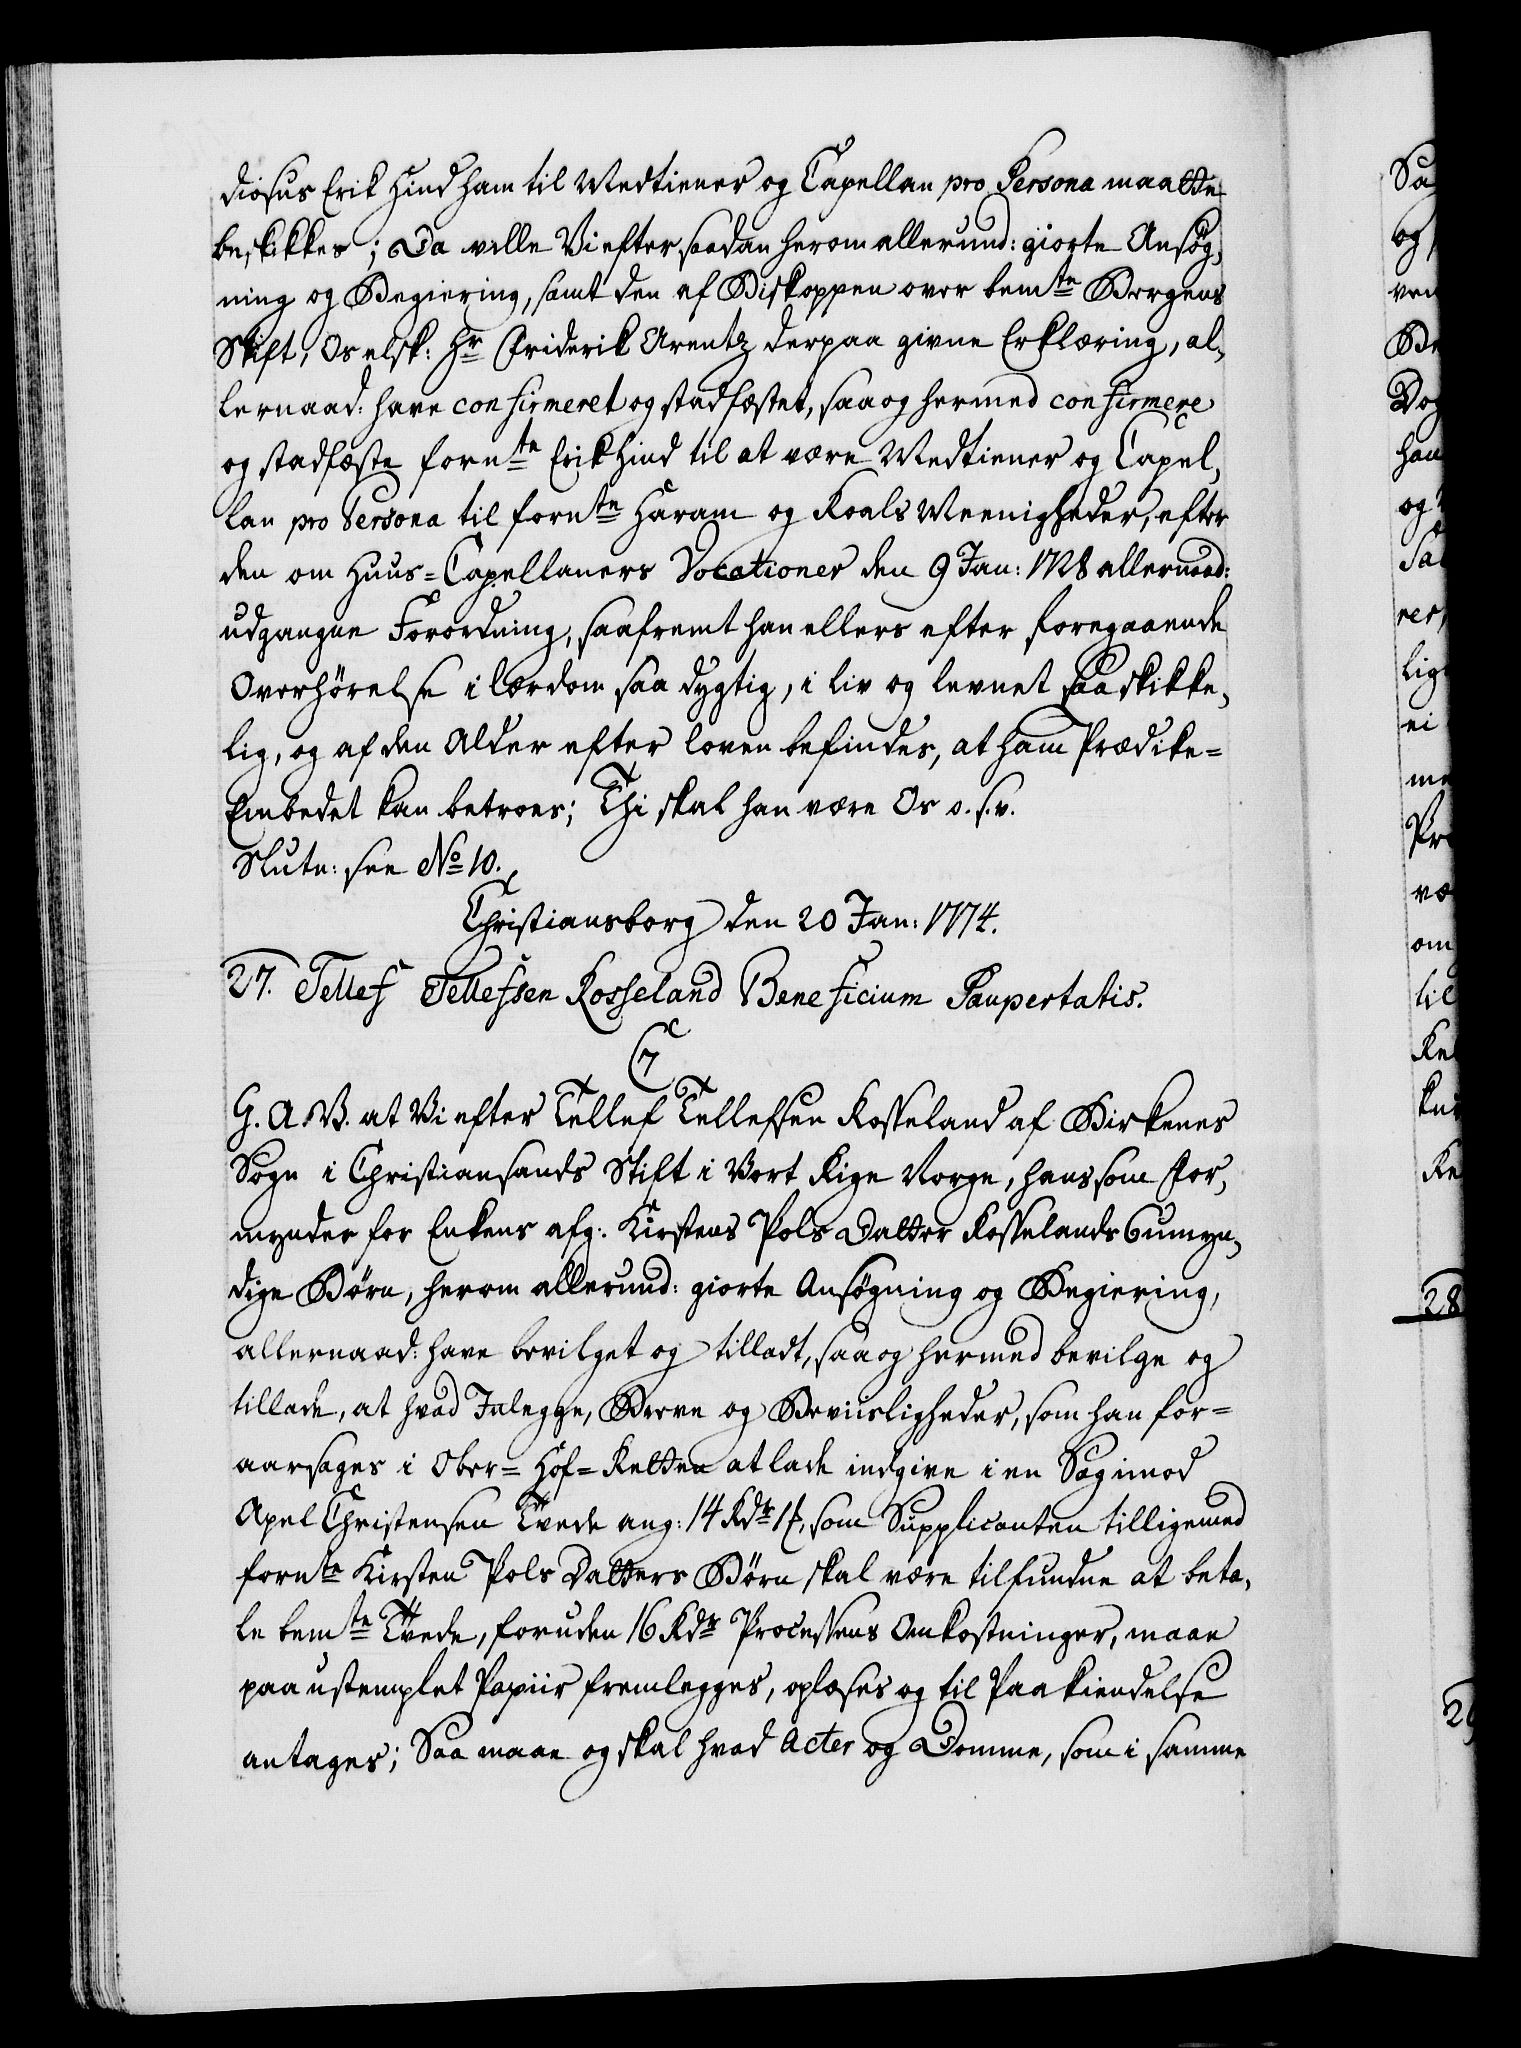 diosus Erik Hind ham til Medtiener og Capellan pro Persona maatte
beskikkes; Da ville Vi efter saadan herom allerund: giorte Ansøg,
ning og Begiering, samt den af Biskoppen over bemte Bergens
Stift, Os elsk: Hr Friderik Arentz derpaa givne Erklæring, al,
lernaad: have confirmeret og stadfæstet, saa og hermed confirmere
og stadfæste fornte Erik Hind til at være Medtiener og Capel,
lan pro Persona til fornte Haram og Roals Meenigheder, efter
den om Huus=Capellaners Vocationer den 9 Jan: 1728 allernaad:
udgangne Forordning, saafremt han ellers efter foregaaende
Overhørelse i lærdom saa dygtig, i liv og levnet saa skikke,
lig, og af den Alder efter loven befindes, at ham Prædike=
Embedet kan betroes; Thi skal han være Os o.s.v.
Slutn: see No 10.
Christiansborg den 20 Jan: 1774.
27. Tellef Tellefsen Rosseland Beneficium Paupertatis.
C7
G. A. V. at Vi efter Tellef Tellefsen Rosseland af Birkenes
Sogn i Christiansands Stift i Vort Rige Norge, hans som For,
mynder for Enkens afg: Kirstens Pols Datter Rosselands 6 umyn,
dige Børn, herom allerund: giorte Ansøgning og Begiering,
allernaad: have bevilget og tilladt, saa og hermed bevilge og
tillade, at hvad Inlegge, Breve og Beviisligheder, som han for=
aarsages i Ober=Hof=Retten at lade indgive i en Sag imod
Apel Christensen Tvede ang: 14 Rdr 1 ß, som Supplicanten tilligemed
fornte Kirsten Pols Datters Børn skal være tilfundne at beta,
le bemte Tvede, foruden 16 Rdr Processens Omkostninger, maae
paa ustemplet Papiir fremlegges, oplæses og til Paakiendelse
antages; Saa maae og skal hvad Acter og Domme, som i samme